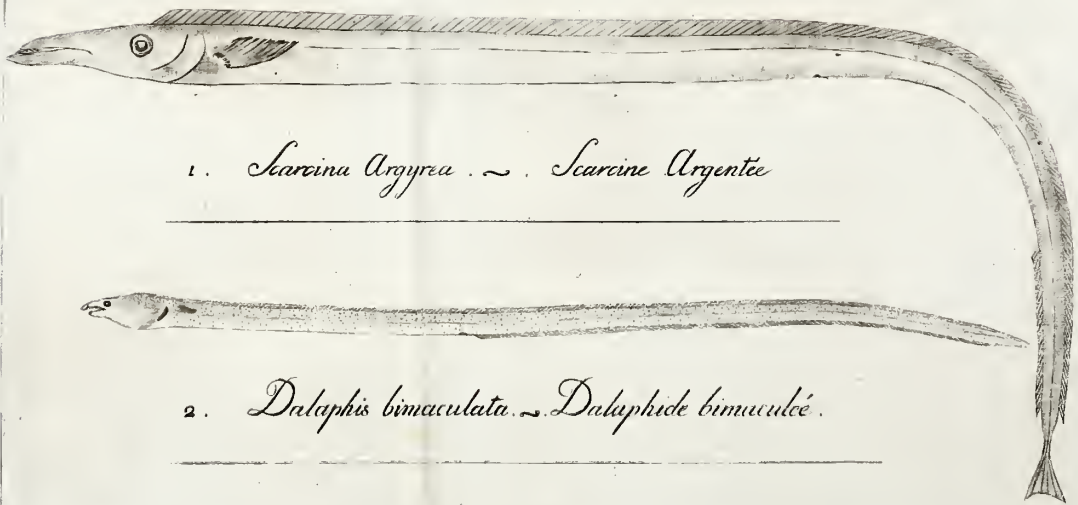 1. Scarcina Argyrea. ~. Scarcine Argentée
2. Dalaphis bimaculata. ~. Dalaphide bimaculeé.